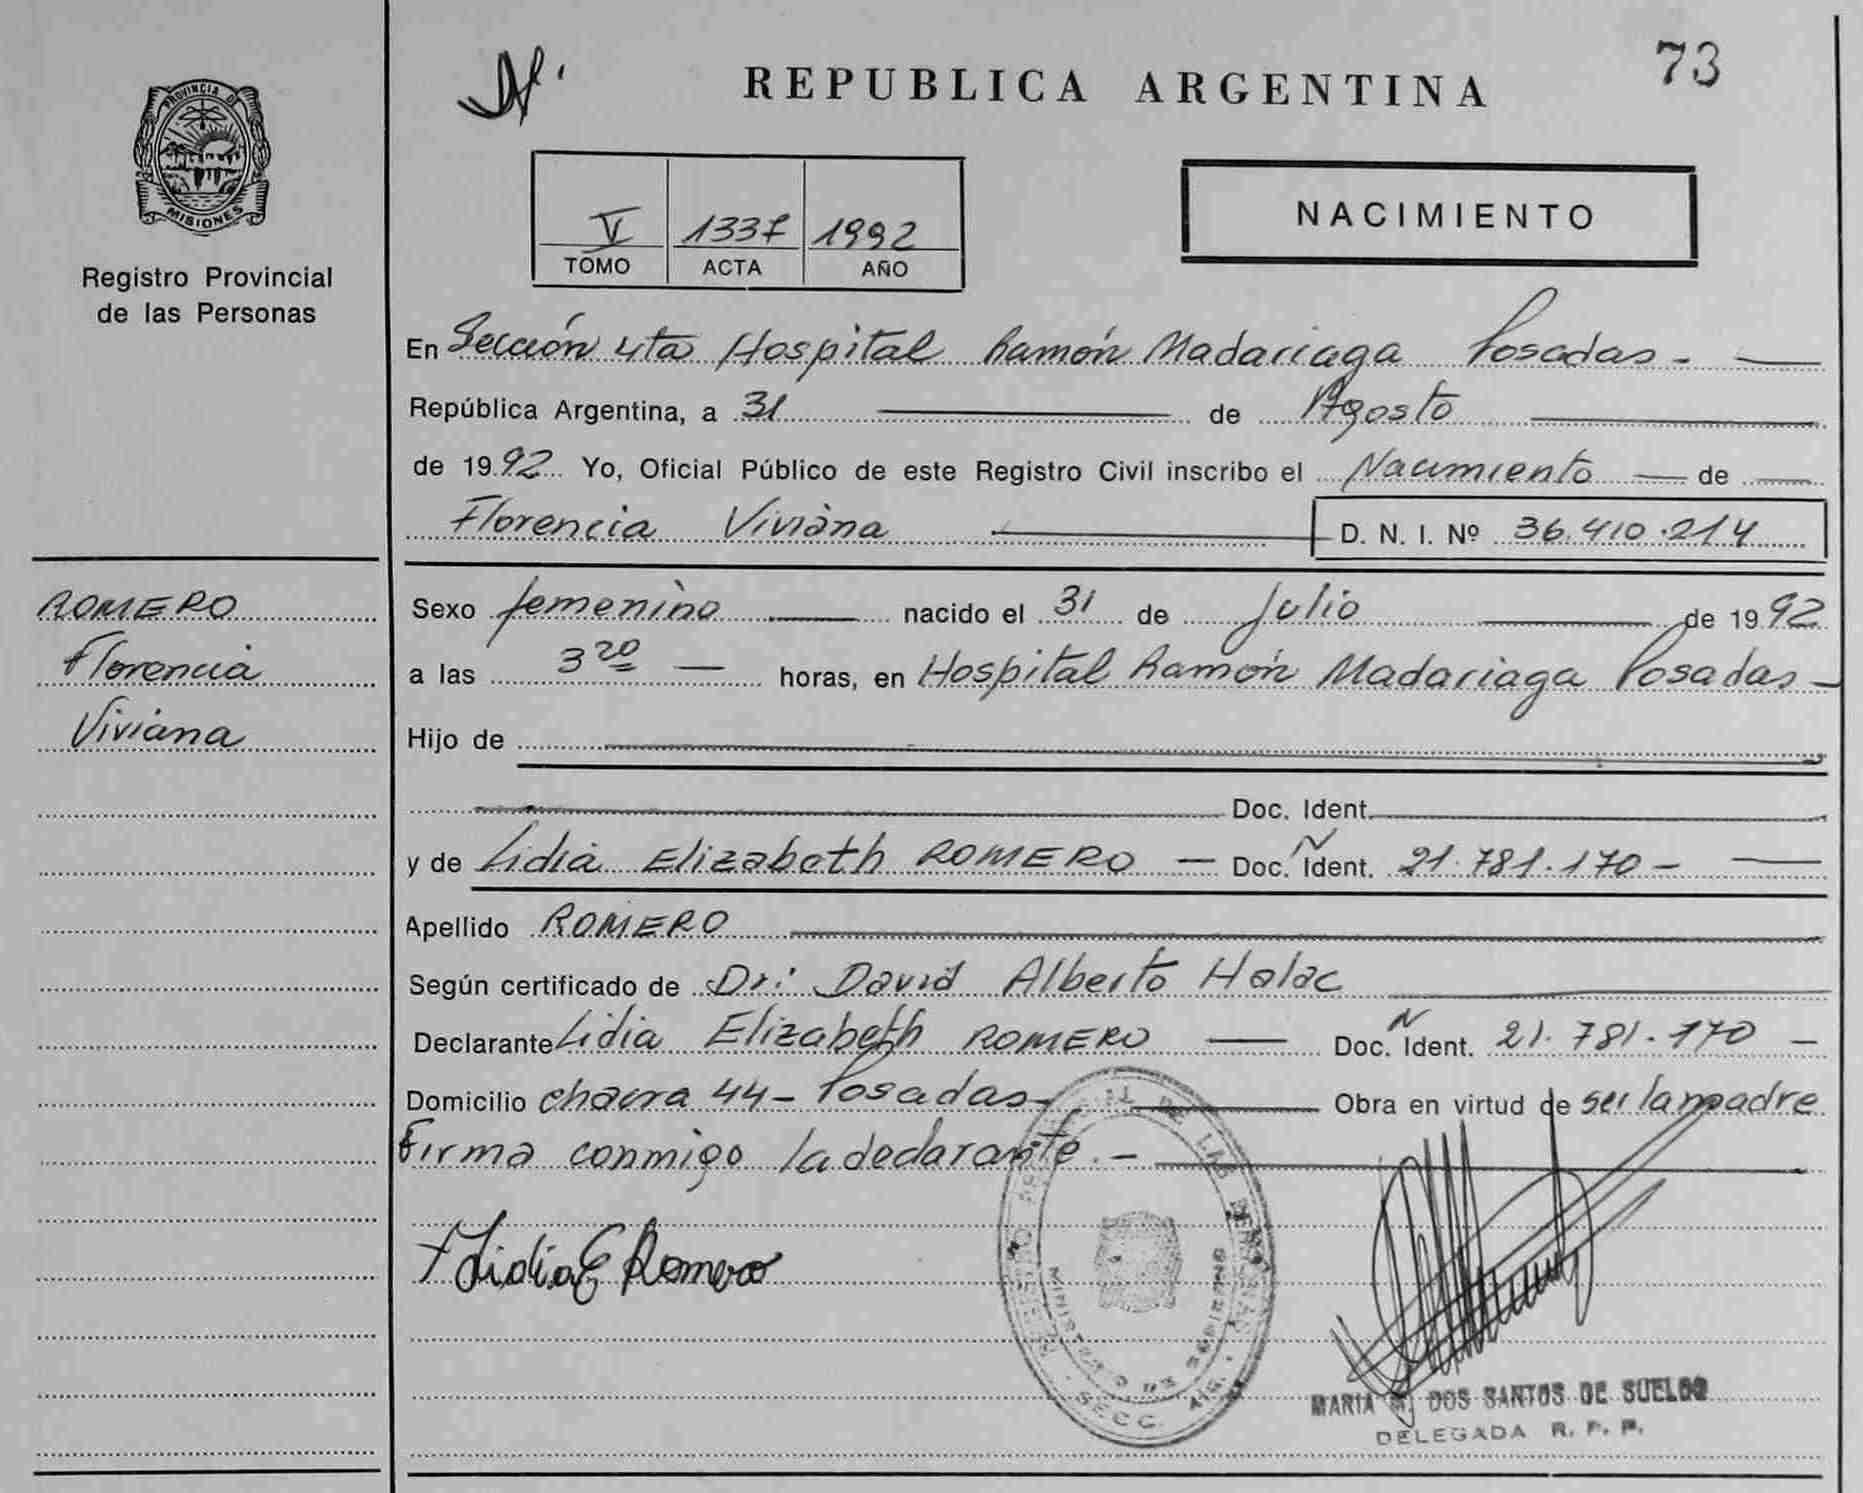 73
REPUBLICA ARGENTINA
PROVINCIA DE
MISIONES
Registro Provincial
de las Personas
V 1337 1992
TOMO ACTA AÑO
NACIMIENTO
En Sección 4ta Hospital Ramón Madariaga Posadas -
República Argentina, a 31 de Agosto
de 1992 Yo, Oficial Público de este Registro Civil inscribo el Nacimiento de
Florencia Viviana D. N. I. Nº 36.410.214
ROMERO
Florencia
Viviana
Sexo femenino nacido el 31 de Julio de 1992
a las 3 20 horas, en Hospital Ramón Madariaga Posadas -
Hijo de
Doc. Ident.
y de Lidia Elizabeth ROMERO - Doc. Ident. 21.781.170 -
Apellido ROMERO
Según certificado de Dr: David Alberto Halac
Declarante Lidia Elizabeth ROMERO Doc. Ident. 21.781.170 -
Domicilio chacra 44 - Posadas - Obra en virtud de ser la madre
Firma conmigo la declarante. -
Lidia E Romero
MARIA DOS SANTOS DE SUELDO
DELEGADA R. P. P.